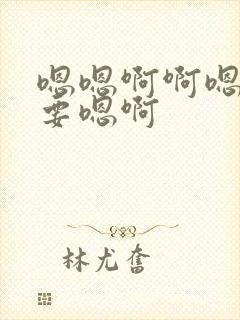 嗯嗯啊啊嗯
要嗯啊
林尤奮